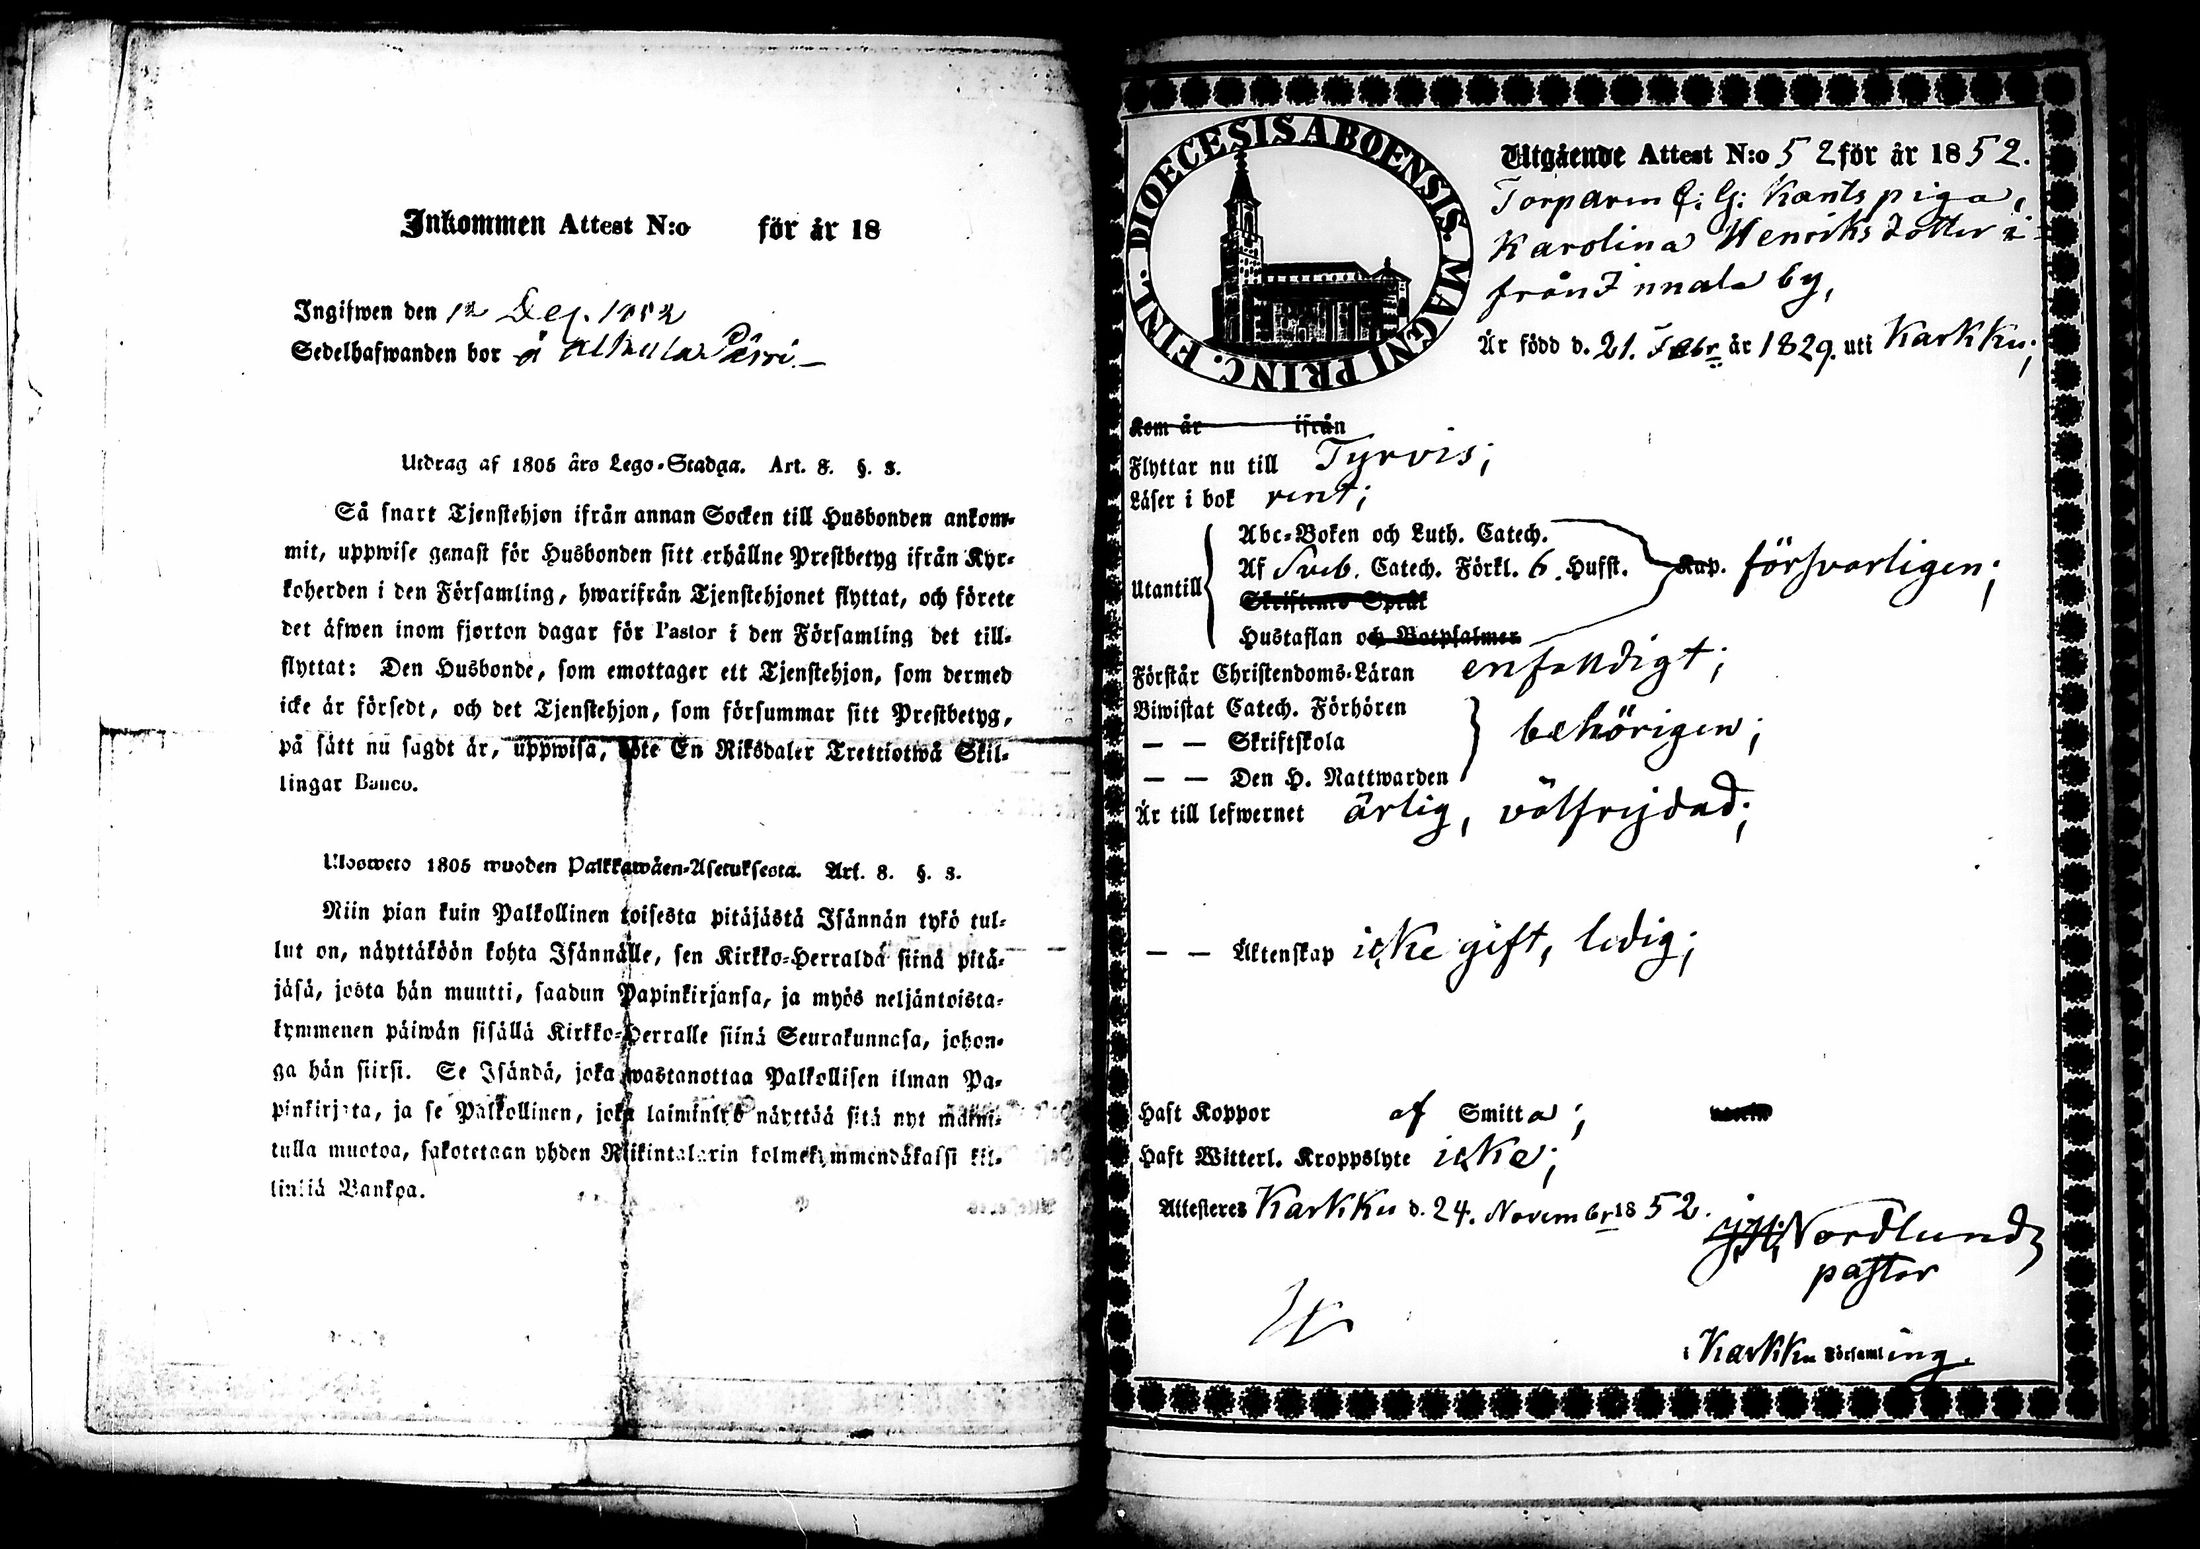 Inkommen Attest N:o för år 18
Ingifwen den 12 Dec. 1852
Sedelhafwanden bor å
Utdrag af 1805 års Lego-Stadga. Art. 8. §. 3.
Så snart Tjenstehjon ifrån annan Socken till Husbonden ankom-
mit, uppwise genast för Husbonden sitt erhållne Prestbetyg ifrån Kyr-
koherden i den Församling, hwarifrån Tjenstehjonet flyttat, och förete
det äfwen inom fjorton dagar för Pastor i den Församling det till-
flyttat: Den Husbonde, som emottager ett Tjenstehjon, som dermed
icke är försedt, och det Tjenstehjon, som försummar sitt Prestbetyg,
på sätt nu sagdt är, uppwisa, böte En Riksdaler Trettiotwå Skil-
lingar Banco.
Ulosweto 1805 wuoden Palkkawäen-Asetuksesta. Art. 8. §. 3.
Niin pian kuin Palkollinen toisesta pitäjästä Isännän tykö tul-
lut on, näyttäköön kohta Isännälle, sen Kirkko-Herralda siinä pitä-
jäsä, josta hän muutti, saadun Papinkirjansa, ja myös neljäntoista-
kymmenen päiwän sisällä Kirkko-Herralle siinä Seurakunnasa, johon-
ga hän siirsi. Se Isändä, joka wastanottaa Palkollisen ilman Pa-
pinkirjata, ja se Palkollinen, joka laiminlyö näyttää sitä nyt mainit-
tulla muotoa, sakotetaan yhden Riikintalarin kolmekymmendäkaksi kil-
linkiä Bankoa.
DIOECESIS ABOENSIS. MAGNI PRINC. FINL.
Utgående Attest N:o 52 för år 1852.
Torparen piga,
Karolina Henriksdotter
från Innala by,
Är född d. 21. Febr. år 1829. uti Karkku;
Kom år ifrån
Flyttar nu till Tyrvis;
Läser i bok rent;
Utantill
Abc-Boken och Luth. Catech.
Af Sveb. Catech. Förkl. 6. Hufst. Kap. försvarligen;
Skriftenes Språk
Hustaflan och Botpsalmer
Förstår Christendoms-Läran enfaldigt;
Biwistat Catech. Förhören
— — Skriftskola behörigen;
— — Den H. Nattwarden
Är till lefwernet ärlig, välfrejdad;
— — Äktenskap icke gift, ledig;
Haft Koppor af Smitta;
Haft Witterl. Kroppslyte icke;
Attesteres Karkku d. 24. Novembr 1852.
Nordlund
pastor
i Karkku Församling.